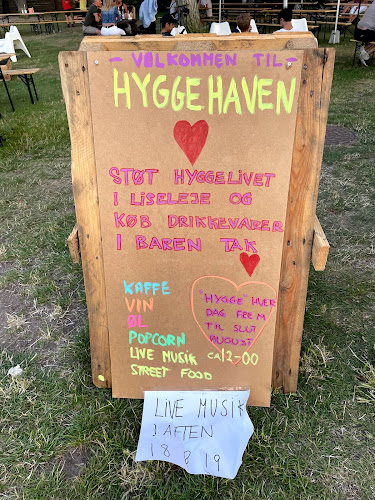 - VELKOMMEN TIL -
HYGGEHAVEN
STØT HYGGELIVET
I LISELEJE OG
KØB DRIKKEVARER
I BAREN TAK
KAFFE
VIN
ØL
POPCORN
LIVE MUSIK
STREET FOOD
"HYGGE" HVER
DAG FREM
TIL SLUT
AUGUST
ca 12-00
LIVE MUSIK
I AFTEN
18 8 19